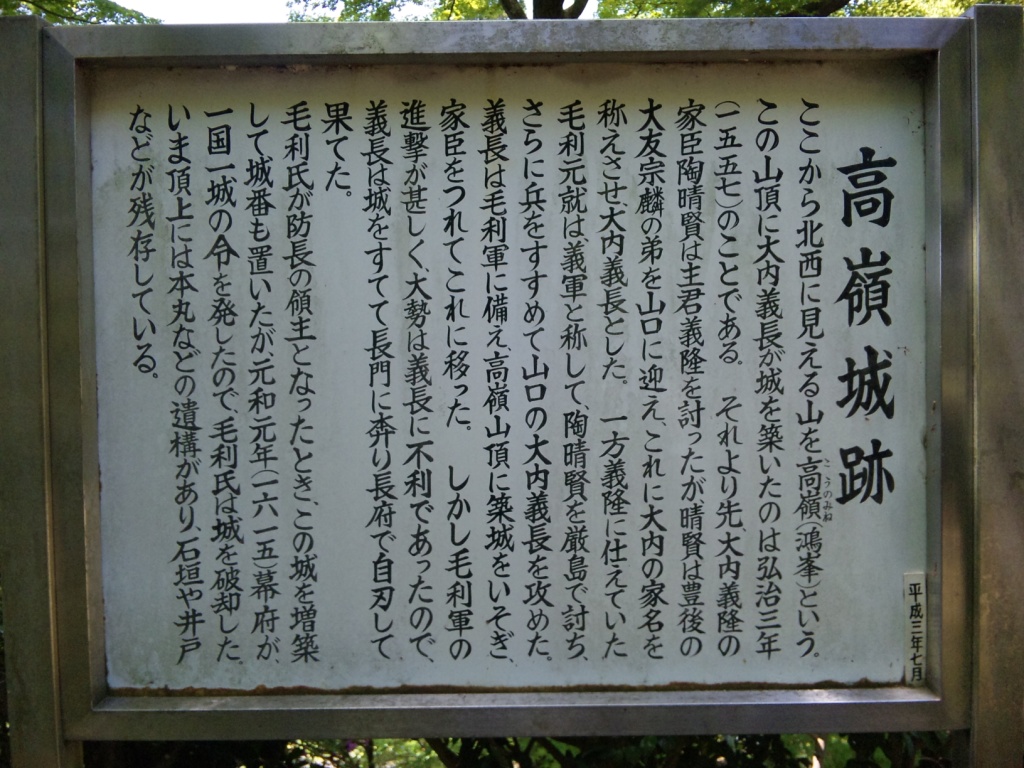 高嶺城跡
ここから北西に見える山を高嶺(鴻峯)という。
こうのみね
この山頂に大内義長が城を築いたのは弘治三年
(一五五七)のことである。 それより先、大内義隆の
家臣陶晴賢は主君義隆を討ったが晴賢は豊後の
大友宗麟の弟を山口に迎え、これに大内の家名を
称えさせ、大内義長とした。 一方義隆に仕えていた
毛利元就は義軍と称して、陶晴賢を厳島で討ち、
さらに兵をすすめて山口の大内義長を攻めた。
義長は毛利軍に備え、高嶺山頂に築城をいそぎ、
家臣をつれてこれに移った。 しかし毛利軍の
進撃が甚しく、大勢は義長に不利であったので、
義長は城をすてて長門に奔り長府で自刃して
果てた。
毛利氏が防長の領主となったとき、この城を増築
して城番も置いたが、元和元年(一六一五)幕府が、
一国一城の令を発したので、毛利氏は城を破却した。
いま頂上には本丸などの遺構があり、石垣や井戸
などが残存している。
平成三年七月